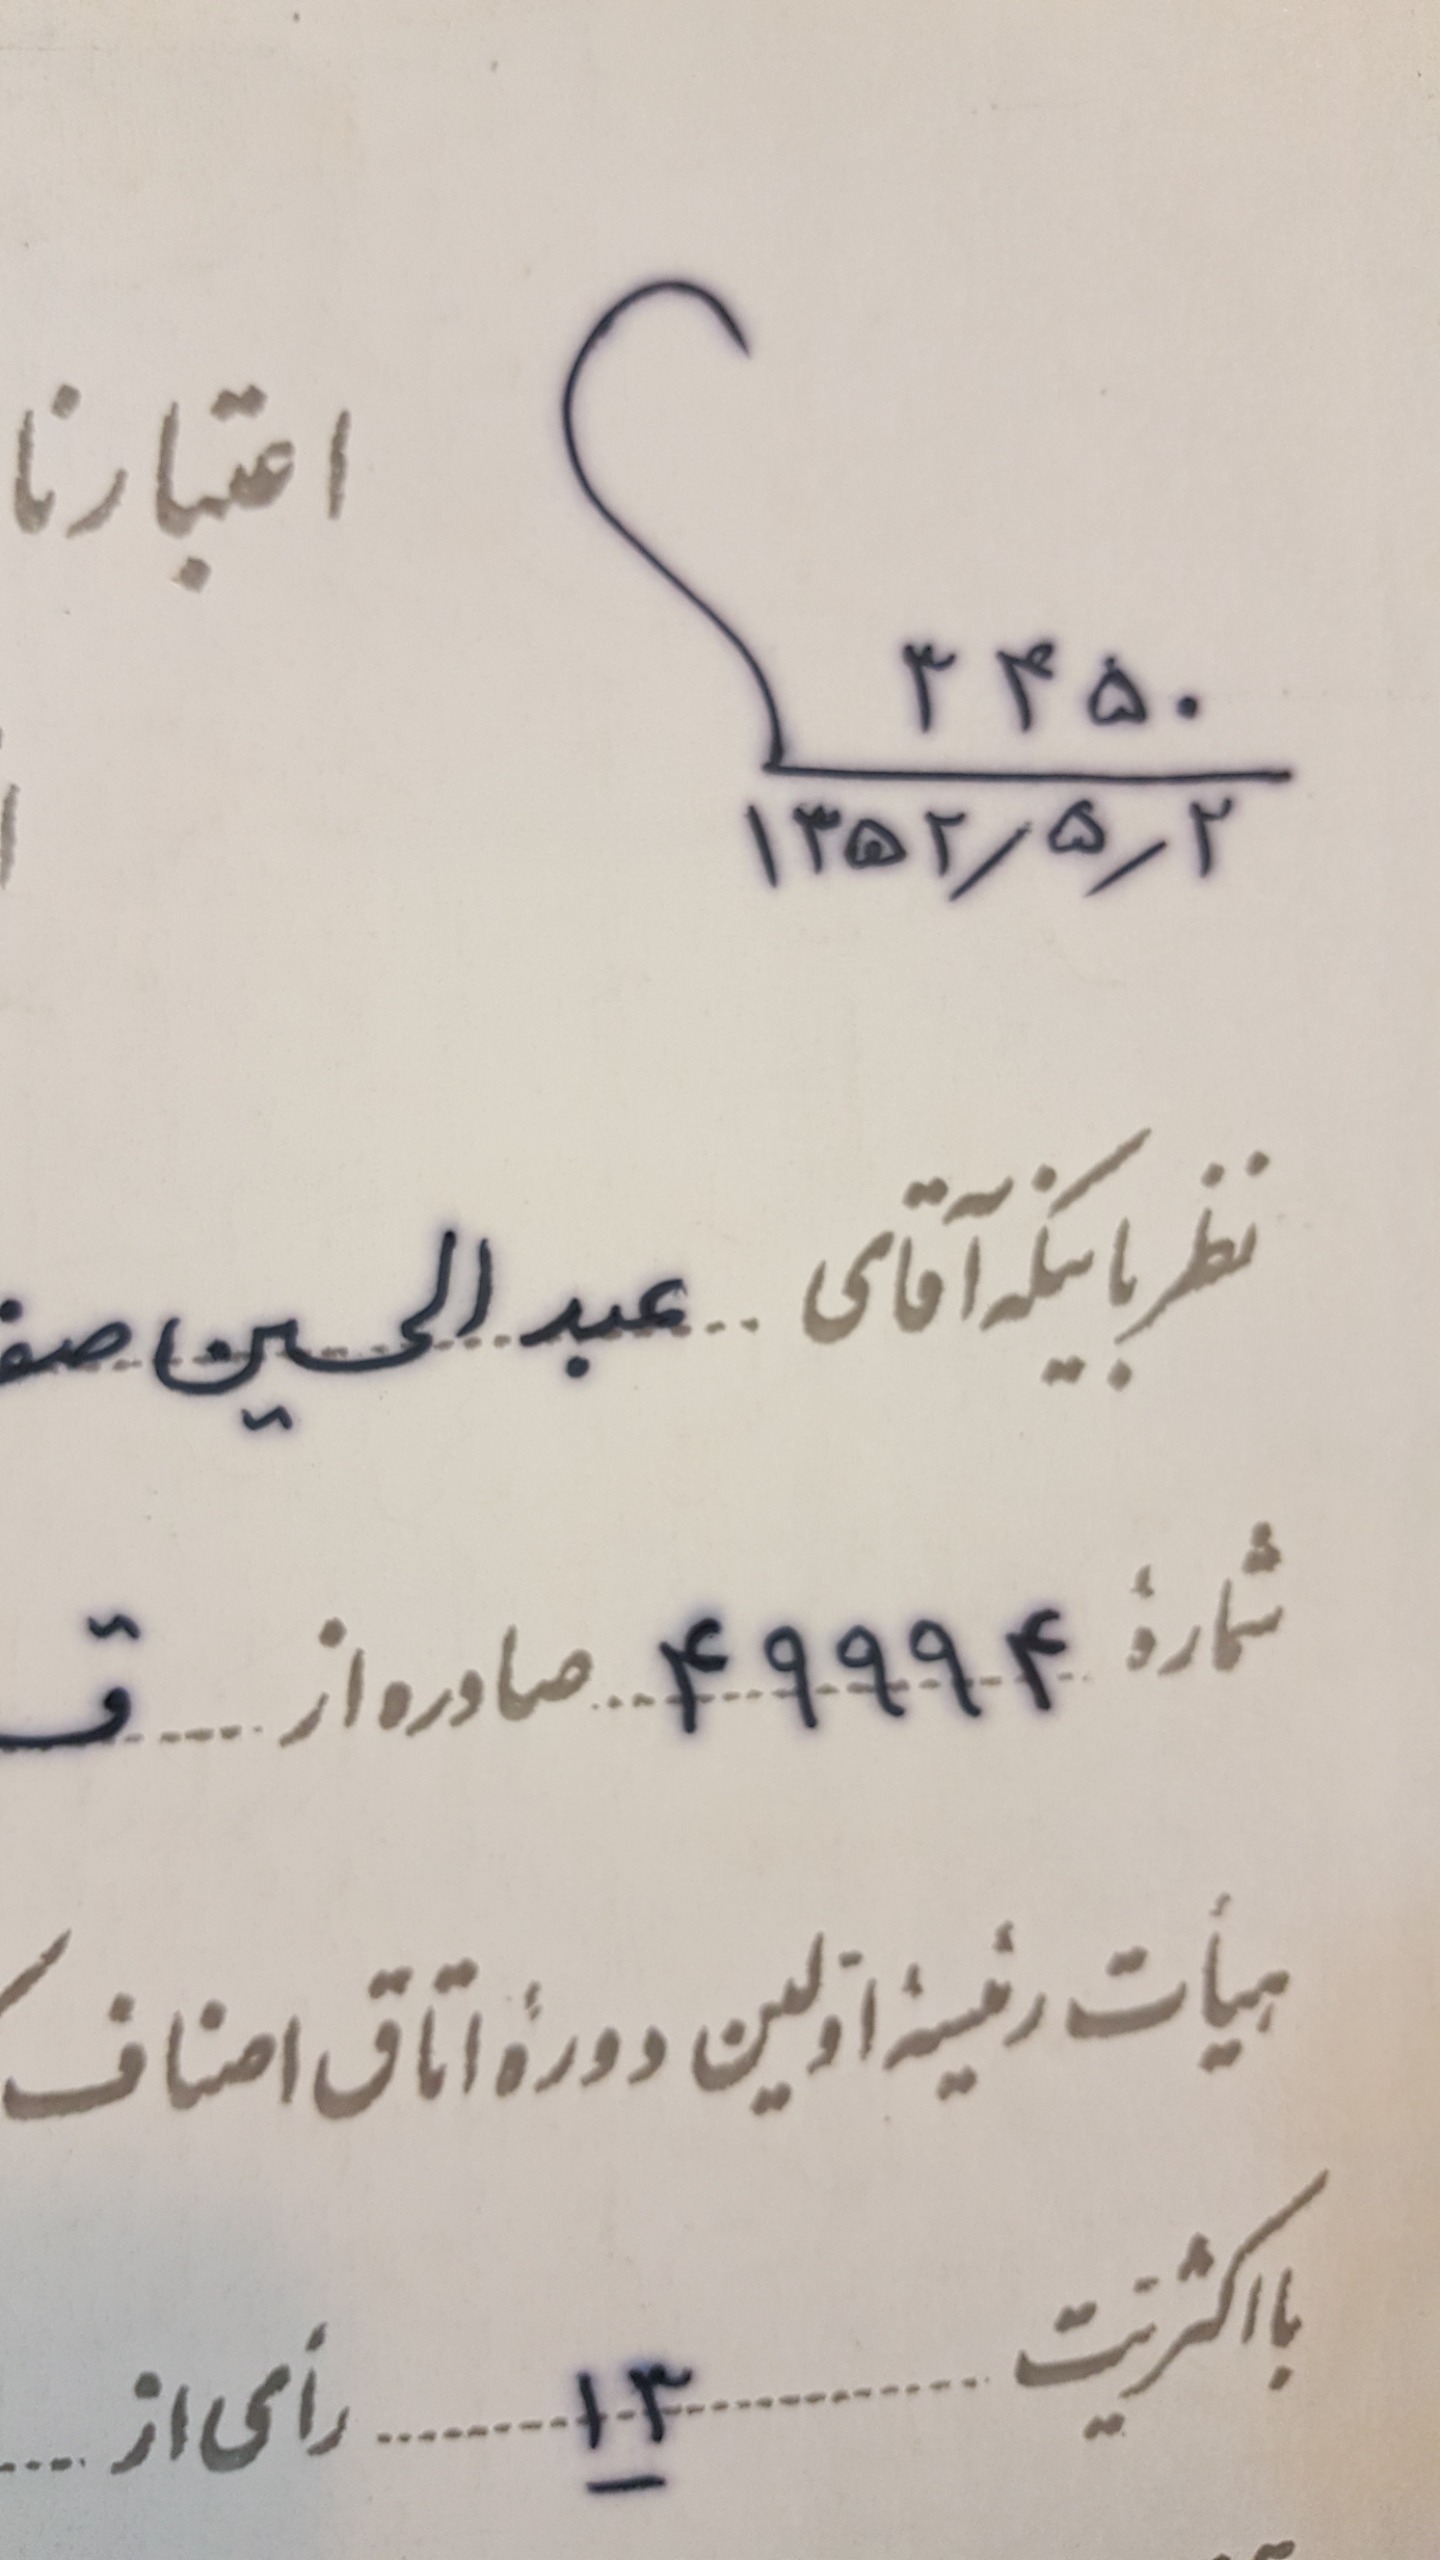 اعتبارنا
۳۴۵۰
۱۳۵۲/۵/۲
نظر باینکه آقای عبدالحسین صف
شمارهٔ ۴۹۹۹۴ صادره از ق
هیأت رئیسهٔ اولین دورهٔ اتاق اصناف
با اکثریت ۱۳ رأی از